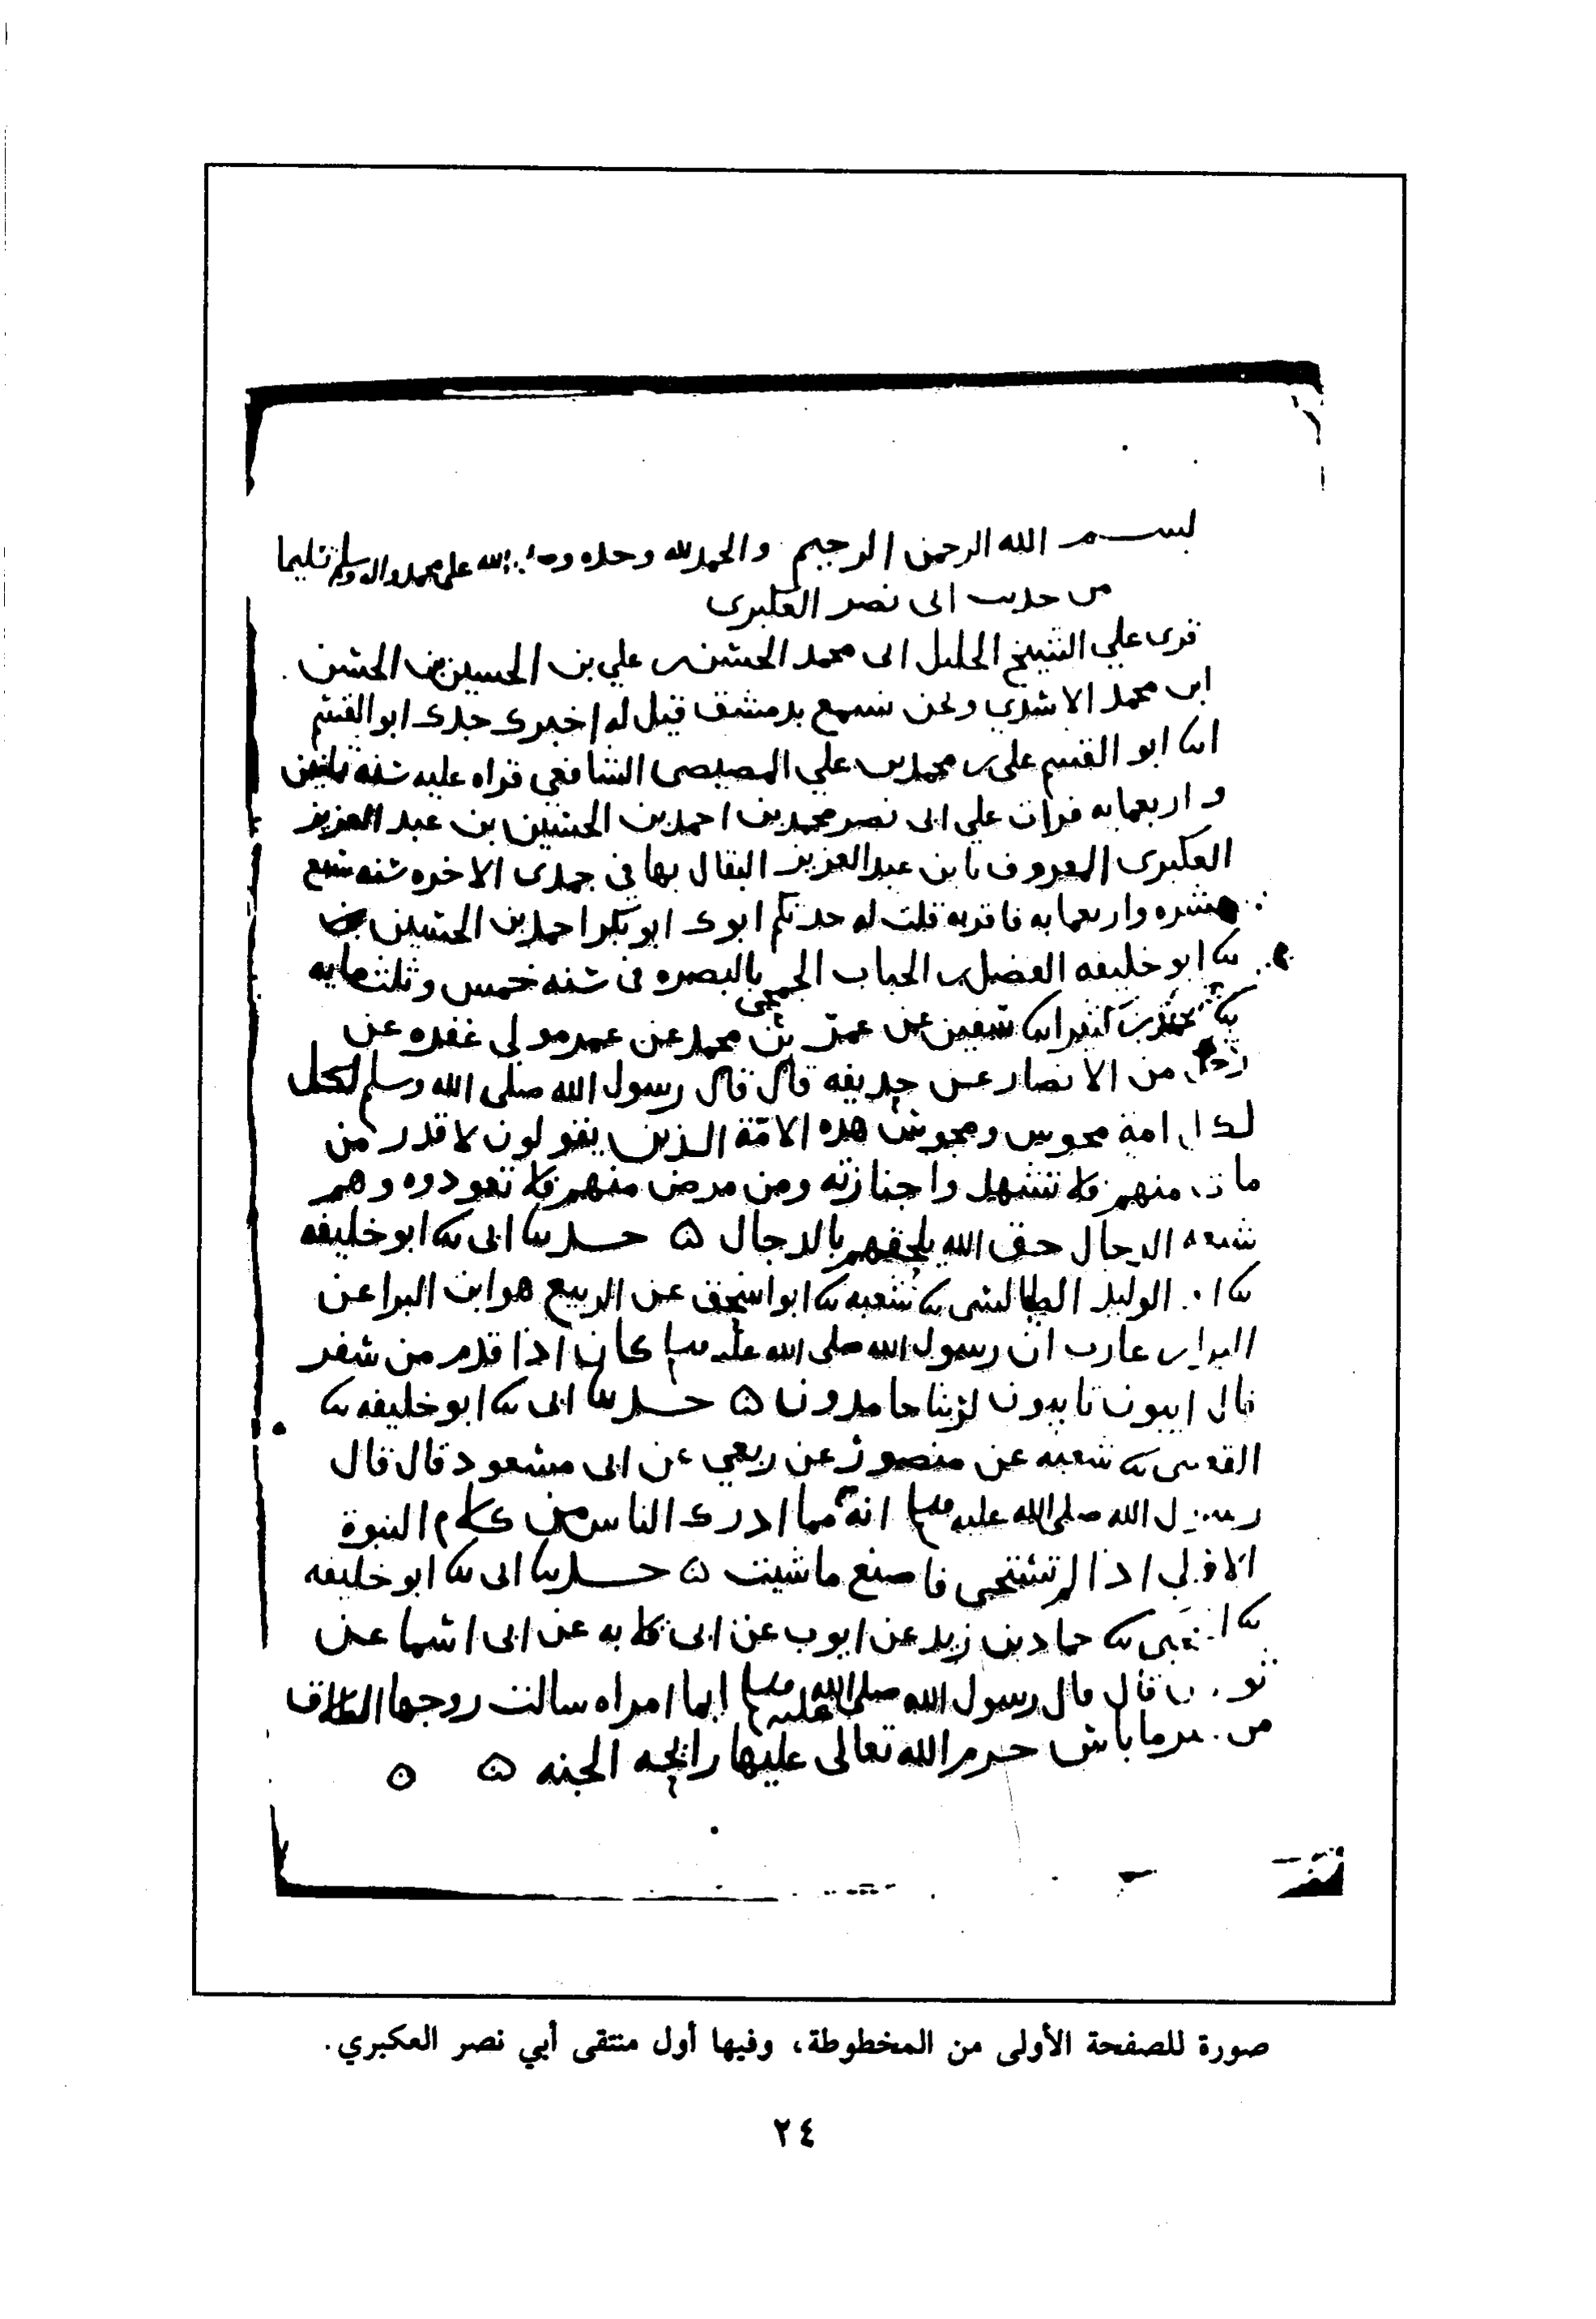 بسم الله الرحمن الرحيم والحمد لله وحده الله على محمد واله وسلم تسليما
من حديث ابى نصر العكبرى
قرى علي الشيخ الجليل ابى محمد الحسن بن علي بن الحسين بن الحسن
ابن محمد الاسدي ونحن نسمع بدمشق قيل له اخبرك جدك ابو القسم
انا ابو القسم على بن محمد بن علي المصيصى الشافعي قراه عليه سنه ثمانين
واربعمايه قرات علي ابى نصر محمد بن احمد بن الحسين بن عبد العزيز
العكبرى المعروف بابن عبد العزيز البقال بها في جمدى الاخره سنه سبع
عشره واربعمايه فاقر به قلت له حدثكم ابوك ابو بكر احمد بن الحسين
نا ابو خليفه الفضل بن الحباب الجمحي بالبصره في سنه خمس وثلثمايه
نا محمد بن كثير انا سفين عن عمر بن محمد عن عمر مولى غفره عن
رجل من الانصار عن حذيفه قال قال رسول الله صلى الله وسلم لكل
لكل امة مجوس ومجوس هذه الامّة الذين يقولون لا قدر من
مات منهم فلا تشهدوا جنازته ومن مرض منهم فلا تعودوه وهم
شيعه الدجال حق الله يلحقهم بالدجال ه حدثنا ابى نا ابو خليفه
نا ابو الوليد الطيالسي نا شعبه نا ابو اسحق عن الربيع هو ابن البرا عن
البرا بن عازب ان رسول الله صلى الله عليه وسلم كان اذا قدم من سفر
قال ايبون تايبون لربنا حامدون ه حدثنا ابى نا ابو خليفه نا
القعنبى نا شعبه عن منصور عن ربعي عن ابى مسعود قال قال
رسول الله صلى الله عليه وسلم انه مما ادرك الناس من كلام النبوة
الاولى اذا لم تستحى فاصنع ما شيت ه حدثنا ابى نا ابو خليفه
نا القعنبى نا حماد بن زيد عن ايوب عن ابى قلابه عن ابى اسما عن
ثوبان قال قال رسول الله صلى الله عليه وسلم ايما امراه سالت زوجها الطلاق
من غير ما باس حرم الله تعالى عليها رايحه الجنه ه ه
صورة للصفحة الأولى من المخطوطة، وفيها أول منتقى أبي نصر العكبري.
٢٤